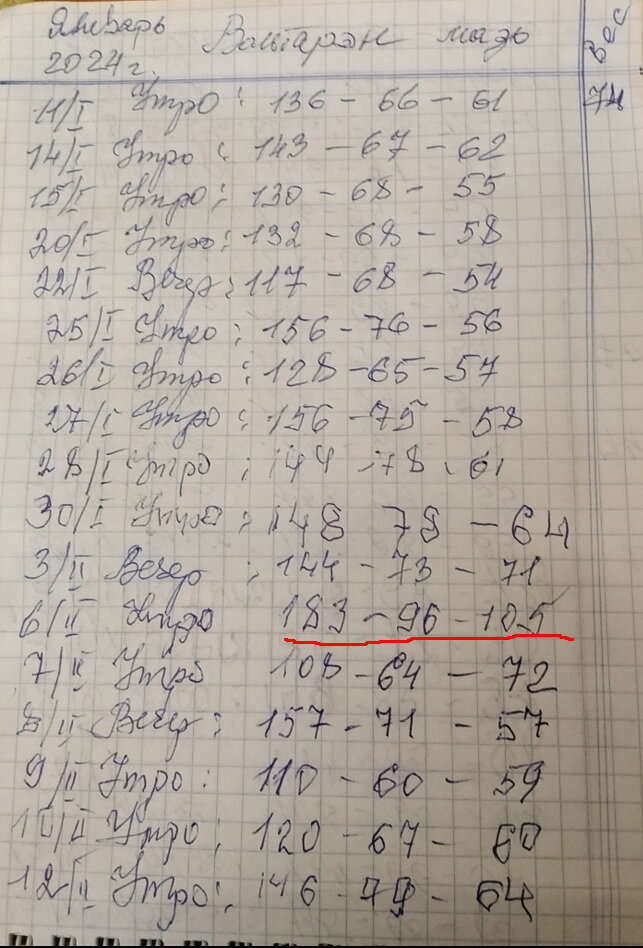 Январь Вольтарэн мазь Вес
2024 г.
11/I Утро: 136 - 66 - 61 74
14/I Утро: 143 - 67 - 62
15/I Утро: 130 - 68 - 55
20/I Утро: 132 - 68 - 58
22/I Вечер: 117 - 68 - 54
25/I Утро: 156 - 76 - 56
26/I Утро: 128 - 65 - 57
27/I Утро: 156 - 75 - 58
28/I Утро: 144 78 - 61
30/I Утро: 148 78 - 64
3/II Вечер: 144 - 73 - 71
6/II Утро 183 - 96 - 105
7/II Утро 108 - 64 - 72
8/II Вечер: 157 - 71 - 57
9/II Утро: 110 - 60 - 59
10/II Утро; 120 - 67 - 60
12/II Утро: 146 - 79 - 64